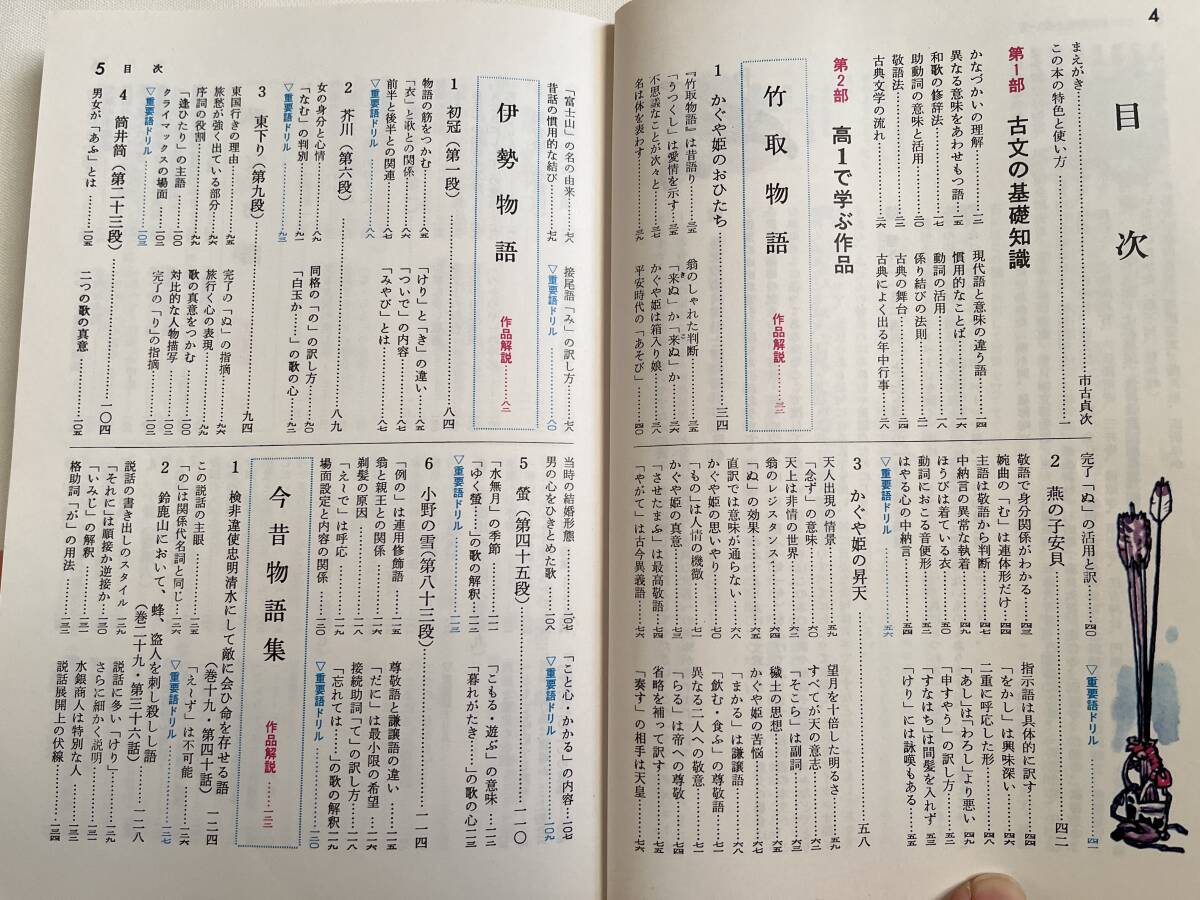 4
目次
まえがき……市古貞次
この本の特色と使い方……一
第1部 古文の基礎知識
かなづかいの理解……一二
異なる意味をあわせもつ語……一五
和歌の修辞法……一七
助動詞の意味と活用……二〇
敬語法……三〇
古典文学の流れ……二六
現代語と意味の違う語……一四
慣用的なことば……一六
動詞の活用……一八
係り結びの法則……二四
古典の舞台……
古典によく出る年中行事……
第2部 高1で学ぶ作品
竹取物語 作品解説……三二
1 かぐや姫のおひたち……三四
『竹取物語』は昔語り……三五
「うつくし」は愛情を示す……三五
不思議なことが次々と……三七
名は体を表わす……三九
翁のしゃれた判断……三五
「来ぬ」か「来ぬ」か……三六
かぐや姫は箱入り娘……三八
平安時代の「あそび」……四〇
完了「ぬ」の活用と訳……四〇
▽重要語ドリル……四一
2 燕の子安貝……四二
敬語で身分関係がわかる……四三
婉曲の「む」は連体形だけ……四四
主語は敬語から判断……四五
中納言の異常な執着……四九
ほうびは着ている衣……五一
動詞におこる音便形……五四
はやる心の中納言……五四
▽重要語ドリル……五六
指示語は具体的に訳す……四三
「をかし」は興味深い……四四
二重に呼応した形……四六
「あし」は「わろし」より悪い……四八
「申すやう」の訳し方……五一
「すなはち」は間髪を入れず……五三
「けり」には詠嘆もある……五五
3 かぐや姫の昇天……五八
天人出現の情景……五九
「念ず」の意味……六〇
天上は非情の世界……六三
翁のレジスタンス……六四
「ぬ」の効果……六六
直訳では意味が通らない……六八
かぐや姫の思いやり……七〇
「もの」は人情の機微……七一
かぐや姫の真意……七三
「させたまふ」は最高敬語……七四
「やがて」は古今異義語……七六
望月を十倍した明るさ……五九
すべてが天の意志……六二
「そこら」は副詞……六四
穢土の思想……六五
かぐや姫の苦悩……六七
「まかる」は謙譲語……六八
「飲む・食ふ」の尊敬語……七一
異なる二人への敬意……七二
「らる」は帝への尊敬……七四
省略を補って訳す……七四
「奏す」の相手は天皇……七六
「富士山」の名の由来……七八
昔話の慣用的な結び……七九
接尾語「み」の訳し方……七八
▽重要語ドリル……八〇
伊勢物語 作品解説……八二
1 初冠(第一段)……八四
物語の筋をつかむ……八五
「衣」と歌との関係……八六
前半と後半との関連……八七
▽重要語ドリル……八八
「けり」と「き」の違い……八五
「ついで」の内容……八六
「みやび」とは……八七
2 芥川(第六段)……八九
女の身分と心情……八九
「なむ」の判別……九一
▽重要語ドリル……九三
同格の「の」の訳し方……九〇
「白玉か…」の歌の心……九二
3 東下り(第九段)……九四
東国行きの理由……九五
旅愁が強く出ている部分……九六
序詞の役割……九八
「逢ひたり」の主語……一〇〇
クライマックスの場面……一〇二
▽重要語ドリル……一〇三
完了の「ぬ」の指摘……九六
旅行く心の表現……九六
歌の真意をつかむ……九九
対比的な人物描写……一〇一
完了の「り」の指摘……一〇二
4 筒井筒(第二十三段)……一〇四
男女が「あふ」とは……一〇五
二つの歌の真意……一〇五
5 目次
当時の結婚形態……一〇七
男の心をひきとめた歌……一〇八
「こと心・かかる」の内容……一〇七
▽重要語ドリル……一〇九
5 蛍(第四十五段)……一一〇
「水無月」の季節……一一一
「ゆく蛍……」の歌の解釈……一一二
▽重要語ドリル……一一三
「こもる・遊ぶ」の意味……一一二
「暮れがたき…」の歌の心……一一三
6 小野の雪(第八十三段)……一一四
「例の」は連用修飾語……一一五
翁と親王との関係……一一六
剃髪の原因……一一八
「え〜で」は呼応……一一九
場面設定と内容の関係……一二〇
尊敬語と謙譲語の違い……一一五
「だに」は最小限の希望……一一六
接続助詞「て」の訳し方……一一八
「忘れては……」の歌の解釈……一一九
▽重要語ドリル……一二〇
今昔物語集 作品解説……一二二
1 検非違使忠明清水にして敵に会ひ命を存せる語
(巻十九・第四十話)……一二四
この説話の主眼……一二五
「の」は関係代名詞と同じ……一二六
「え〜ず」は不可能……一二六
▽重要語ドリル……一二七
2 鈴鹿山において、蜂、盗人を刺し殺しし語
(巻二十九・第三十六話)……一二八
説話の書き出しのスタイル……一二九
「それに」は順接か逆接か……一三〇
「いみじ」の解釈……一三一
格助詞「が」の用法……一三三
説話に多い「けり」……一二九
さらに細かく説明……一三一
水銀商人は特別な人……一三二
説話展開上の伏線……一三四